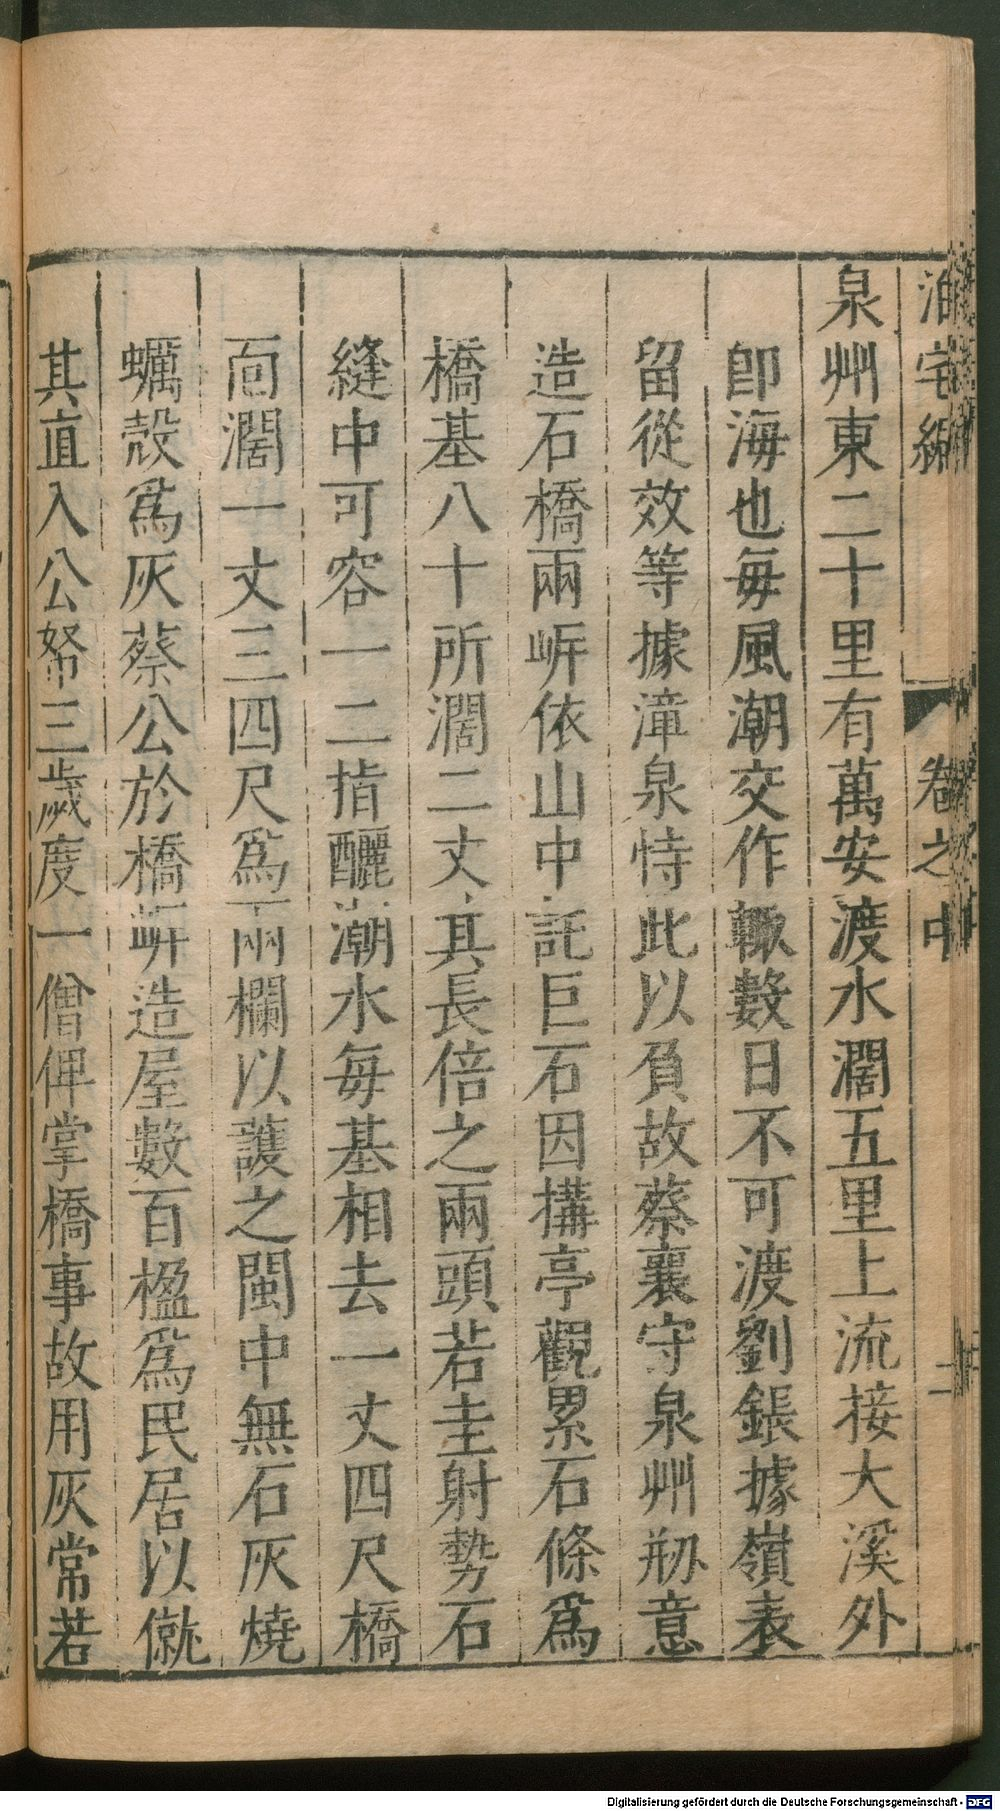 泊宅編 卷之中 二
泉州東二十里有萬安渡水濶五里上流接大溪外
卽海也每風潮交作輒數日不可渡劉鋹據嶺表
留從效等據漳泉恃此以負故蔡襄守泉州剏意
造石橋兩岍依山中託巨石因搆亭觀累石條爲
橋基八十所濶二丈其長倍之兩頭若圭射勢石
縫中可容一二指釃潮水每基相去一丈四尺橋
面濶一丈三四尺爲兩欄以護之閩中無石灰燒
蠣殼爲灰蔡公於橋岍造屋數百楹爲民居以僦
其直入公帑三歲度一僧俾掌橋事故用灰常若
Digitalisierung gefördert durch die Deutsche Forschungsgemeinschaft - DFG